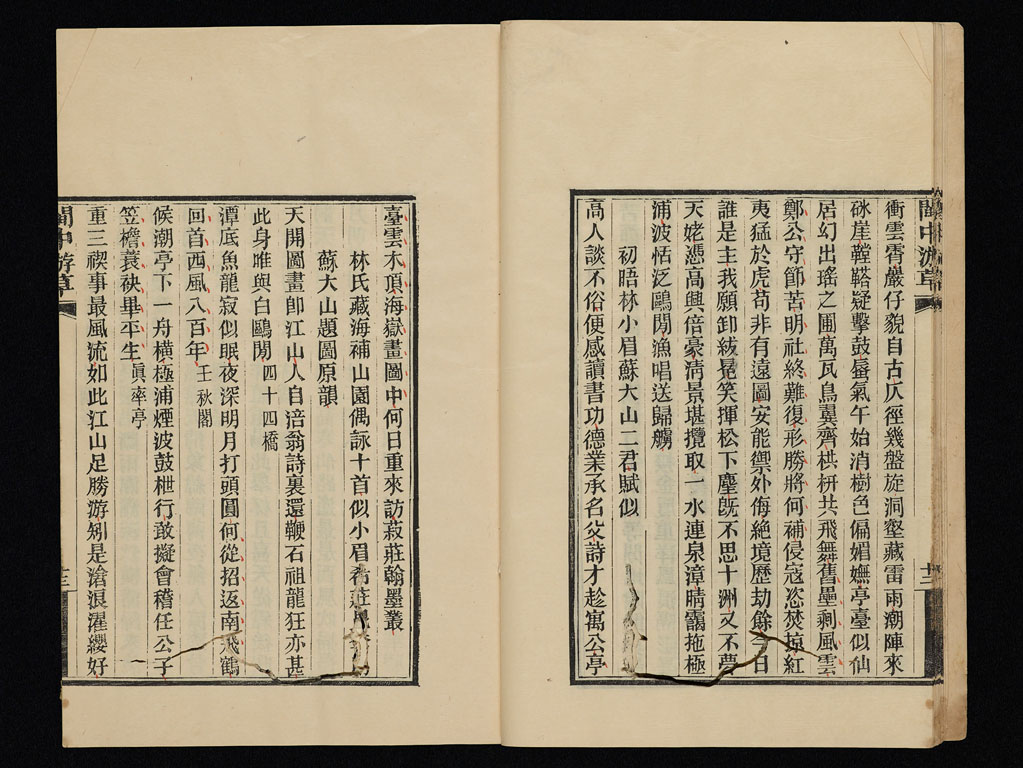 閩中游草
廿二
衝雲霄嚴仔貌自古仄徑幾盤旋洞壑藏雷雨潮陣來
砅崖鞺鞳疑擊鼓蜃氣午始消樹色偏媚嫵亭臺似仙
居幻出瑤之圃萬瓦鳥翼齊栱枅共飛舞舊壘剩風雲
鄭公守節苦明社終難復形勝將何補侵寇恣焚掠紅
夷猛於虎苟非有遠圖安能禦外侮絶境歷劫餘今日
誰是主我願卸紱冕笑揮松下麈旣不思十洲又不夢
天姥憑高興倍豪淸景堪攬取一水連泉漳晴靄拖極
浦波恬泛鷗閒漁唱送歸艣
初晤林小眉蘇大山二君賦似
高人談不俗便感讀書功德業承名父詩才趁寓公亭
臺雲木頂海嶽畫圖中何日重來訪菽莊翰墨叢
林氏藏海補山園偶詠十首似小眉菽莊
蘇大山題圖原韻
天開圖畫卽江山人自涪翁詩裏還鞭石祖龍狂亦甚
此身唯與白鷗閒四十四橋
潭底魚龍寂似眠夜深明月打頭圓何從招返南飛鶴
回首西風八百年壬秋閣
候潮亭下一舟橫極浦煙波鼓枻行敢擬會稽任公子
笠檐蓑袂畢平生眞率亭
重三禊事最風流如此江山足勝游矧是滄浪濯纓好
閩中游草
廿三